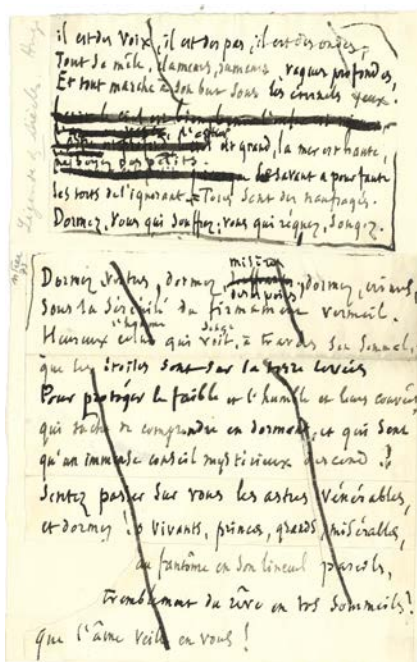 il est des voix, il est des pas, il est des ondes,
Tout se mêle, clameurs, rumeurs, vagues profondes,
Et tout marche à son but sous les éternels yeux.
est grand, la mer est haute,
ne soyez pas petits.
Le savant a pour faute
les torts de l'ignorant. Tous sont des naufragés.
Dormez, vous qui souffrez, vous qui régnez, songez.
Légende des siècles Hugo
misères
Dormez, vertus, dormez, dormez, crimes,
Sous la sérénité du firmament vermeil.
songe
Heureux celui qui voit, à travers son sommeil,
que les étoiles sont sur la terre levées
Pour protéger le faible et l'humble et leurs couvées,
qui tâche de comprendre en dormant, et qui sent
qu'un immense conseil mystérieux descend !
Sentez passer sur vous les astres vénérables,
et dormez ! ô vivants, princes, grands, misérables,
au fantôme en son linceul pareils,
tremblement du rêve en vos sommeils !
que l'âme veille en vous !